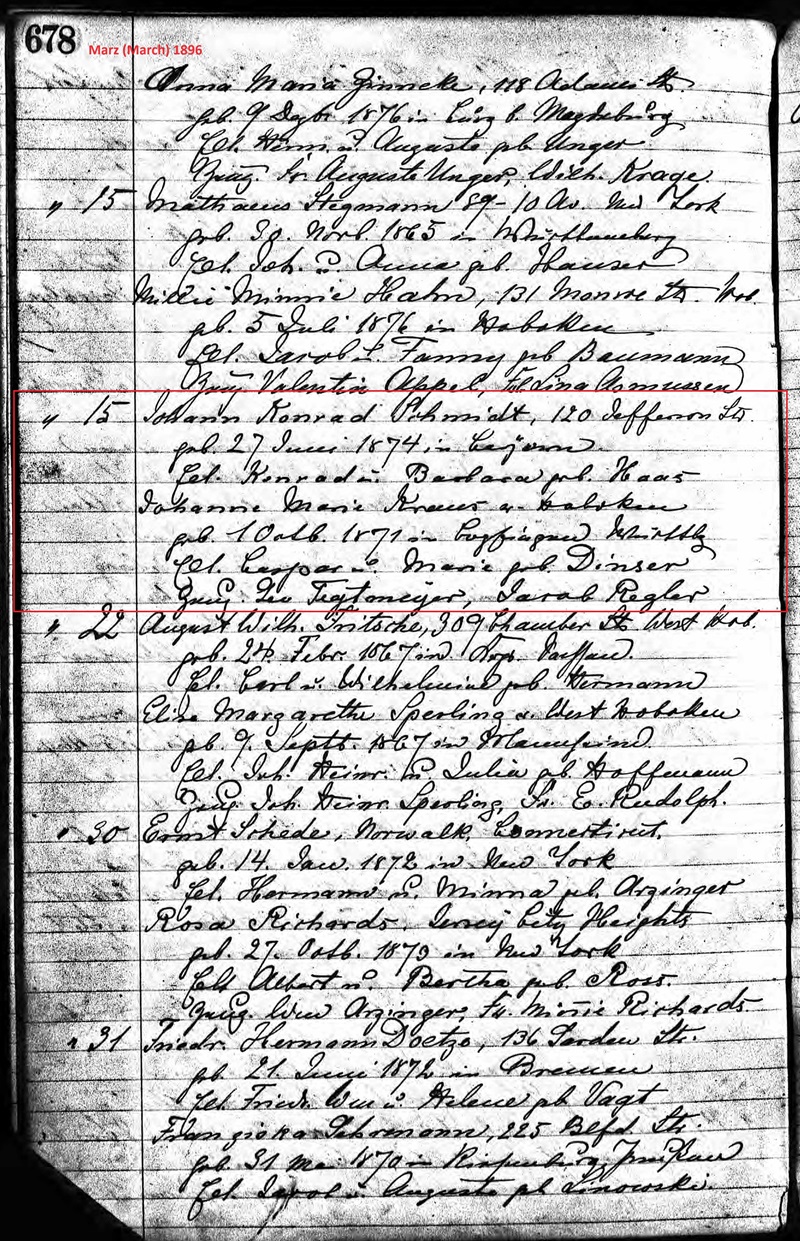 678
Marz (March) 1896
Anna Maria Zinneke, 118 Adams St.
geb. 9 Dezbr 1876 in Burg b. Magdeburg
Elt. Herm. u. Auguste geb Unger
Zeug. Fr. Auguste Unger, Wilh. Krage.
" 15 Mathaeus Stegmann 89-10 Av. New York
geb. 30. Novb. 1865 in Württemberg
Elt. Joh. u. Anna geb. Hauser
Minnie Hahn, 131 Monroe Str. Hob.
geb. 5 Juli 1876 in Hoboken
Elt. Jacob u. Fanny geb Baumann
Zeug Valentin Appel, Frl Lina Asmussen
" 15 Johann Konrad Schmidt, 120 Jefferson Str.
geb. 27 Juni 1874 in Bayern
Elt. Konrad u. Barbara geb. Haas
Johanne Marie Kraus v. Hoboken
geb. 1 Octb. 1871 in Württbg
Elt. Caspar u. Marie geb. Dinser
Zeug. Geo Tegtmeyer, Jacob Regler
" 22 August Wilh. Fritsche, 309 Chamber St. West Hob.
geb. 24. Febr. 1867 in
Elt. Carl u. Wilhelmine geb. Hermann
Elise Margarethe Sperling v. West Hoboken
geb. 9. Septb. 1867 in Mannheim
Elt. Joh. Heinr. u. Julia geb. Hoffmann
Zeug Joh. Heinr. Sperling, Fr. E. Rudolph.
" 30 Ernst Schede, Norwalk, Connecticut.
geb. 14. Jan. 1872 in New York
Elt. Hermann u. Minna geb. Arzinger
Rosa Richards, Jersey City Heights
geb. 27. Octb. 1873 in New York
Elt Albert u. Bertha geb. Ross.
Zeug. Wm Arzinger, Fr. Minie Richards
" 31 Friedr. Hermann Doetzo, 136 Garden Str.
geb. 21. Juni 1872 in Bremen
Elt. Friedr. Wm u. Helene geb Vagt
Franziska Gehrmann, 225 Blfd Str.
geb. 31 Mai 1870 in Riesenburg Preußen
Elt. Jacob u. Auguste geb Linowski.